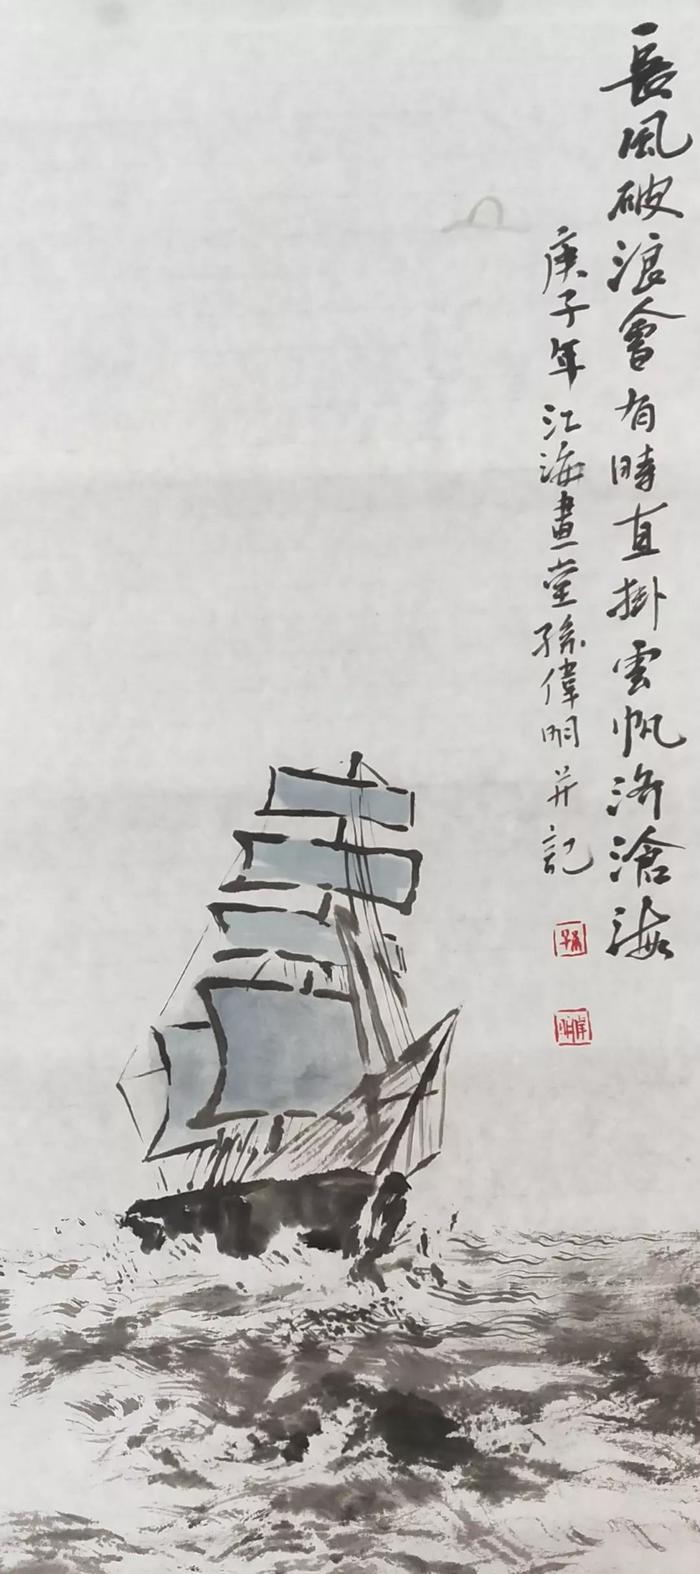 長風破浪會有時直掛雲帆济滄海
庚子年江海畫堂孫偉明并記
孫
偉明